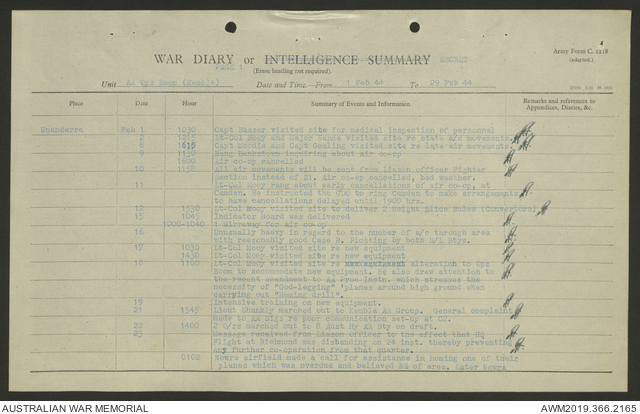 Army Form C. 2118
(adapted.)
WAR DIARY or INTELLIGENCE SUMMARY SECRET
(Erase heading not required).
PAGE 1
Unit AA Ops Room (Kembla) Date and Time.—From 1 Feb 44 To 29 Feb 44
Place Date Hour Summary of Events and Information Remarks and references to
Appendices, Diaries, &c.
Unanderra Feb 1 1030 Capt visited site for medical inspection of personnel
1215 Lt-Col Mooy and Major visited site re state a/c movements
8 1615 Capt Moodie and Capt Gosling visited site re late air movements
9 1130 Rang inquiring about air co-op
1600 Air co-op cancelled
10 1158 All air movements will be sent from liaison officer Fighter
Section instead of 21. Air co-op cancelled, bad weather.
11 Lt-Col Mooy rang about early cancellations of air co-op, at
Camden. He instructed the to ring Camden to make arrangements
to have cancellations delayed until 1900 hrs.
12 1530 Lt-Col Mooy visited site to deliver 2 Height Slide Rules (Convertors)
15 1045 Indicator Board was delivered
1000-1040 1 Wirraway for air co-op
16 Unusually heavy in regard to the number of a/c through area
with reasonably good Case D. Plotting by both S/L Btys.
17 1030 Lt-Col Mooy visited site re new equipment
1430 Lt-Col Mooy visited site re new equipment
18 1100 Lt-Col Mooy visited site re alteration to Ops
Room to accomodate new equipment. He also drew attention to
the recent amendment to AA Proc Instn. which stresses the
necessity of "God-legging" planes around high ground when
carrying out "Homing drill".
19 Intensive training on new equipment.
21 1545 Lieut Shankly marched out to Kembla AA Group. General complaint
made to AA Sigs re poor communication set-up at
22 1400 2 O/rs marched out to 8 Aust Hy AA Bty on draft.
23 Message received from liaison officer to the effect that HQ
Flight at Richmond was disbanding on 24 inst. thereby preventing
any further co-operation from that quarter.
0102 Nowra airfield made a call for assistance in homing one of their
planes which was overdue and believed NE of area. Later Nowra
AUSTRALIAN WAR MEMORIAL
AWM2019.366.2165